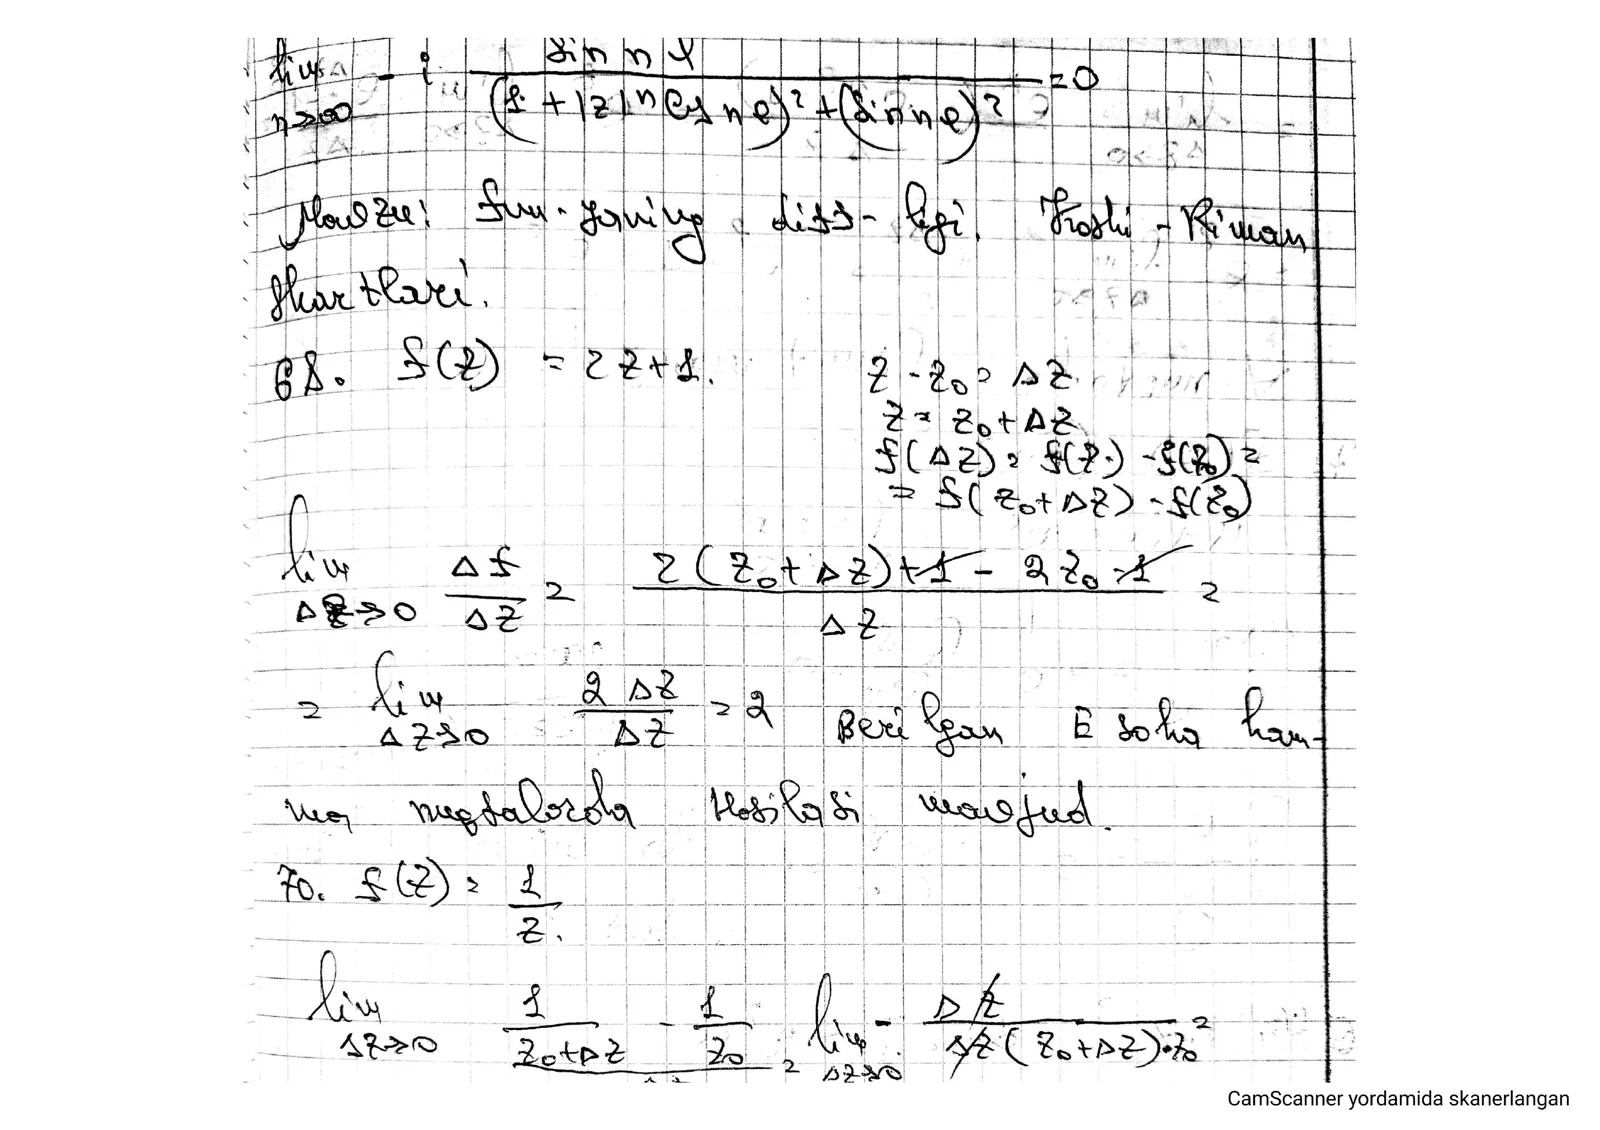 lim n→∞ - i sin nφ / ((1 + |z|ⁿ cos nφ)² + (sin nφ)²) = 0
Mavzu: Fun-yaning diff-ligi. Koshi - Riman
shartlari.
68. f(z) = 2z+1.
z - z₀ = Δz
z = z₀ + Δz
f(Δz) = f(z) - f(z₀) =
= f(z₀+Δz) - f(z₀)
lim Δz→0 Δf/Δz = (2(z₀+Δz)+1 - 2z₀ - 1)/Δz =
= lim Δz→0 2Δz/Δz = 2 Berilgan E soha ham-
ma nuqtalarda Hosilasi mavjud.
70. f(z) = 1/z.
lim Δz→0 (1/(z₀+Δz) - 1/z₀) = lim Δz→0 - Δz/(Δz(z₀+Δz)·z₀) =
CamScanner yordamida skanerlangan